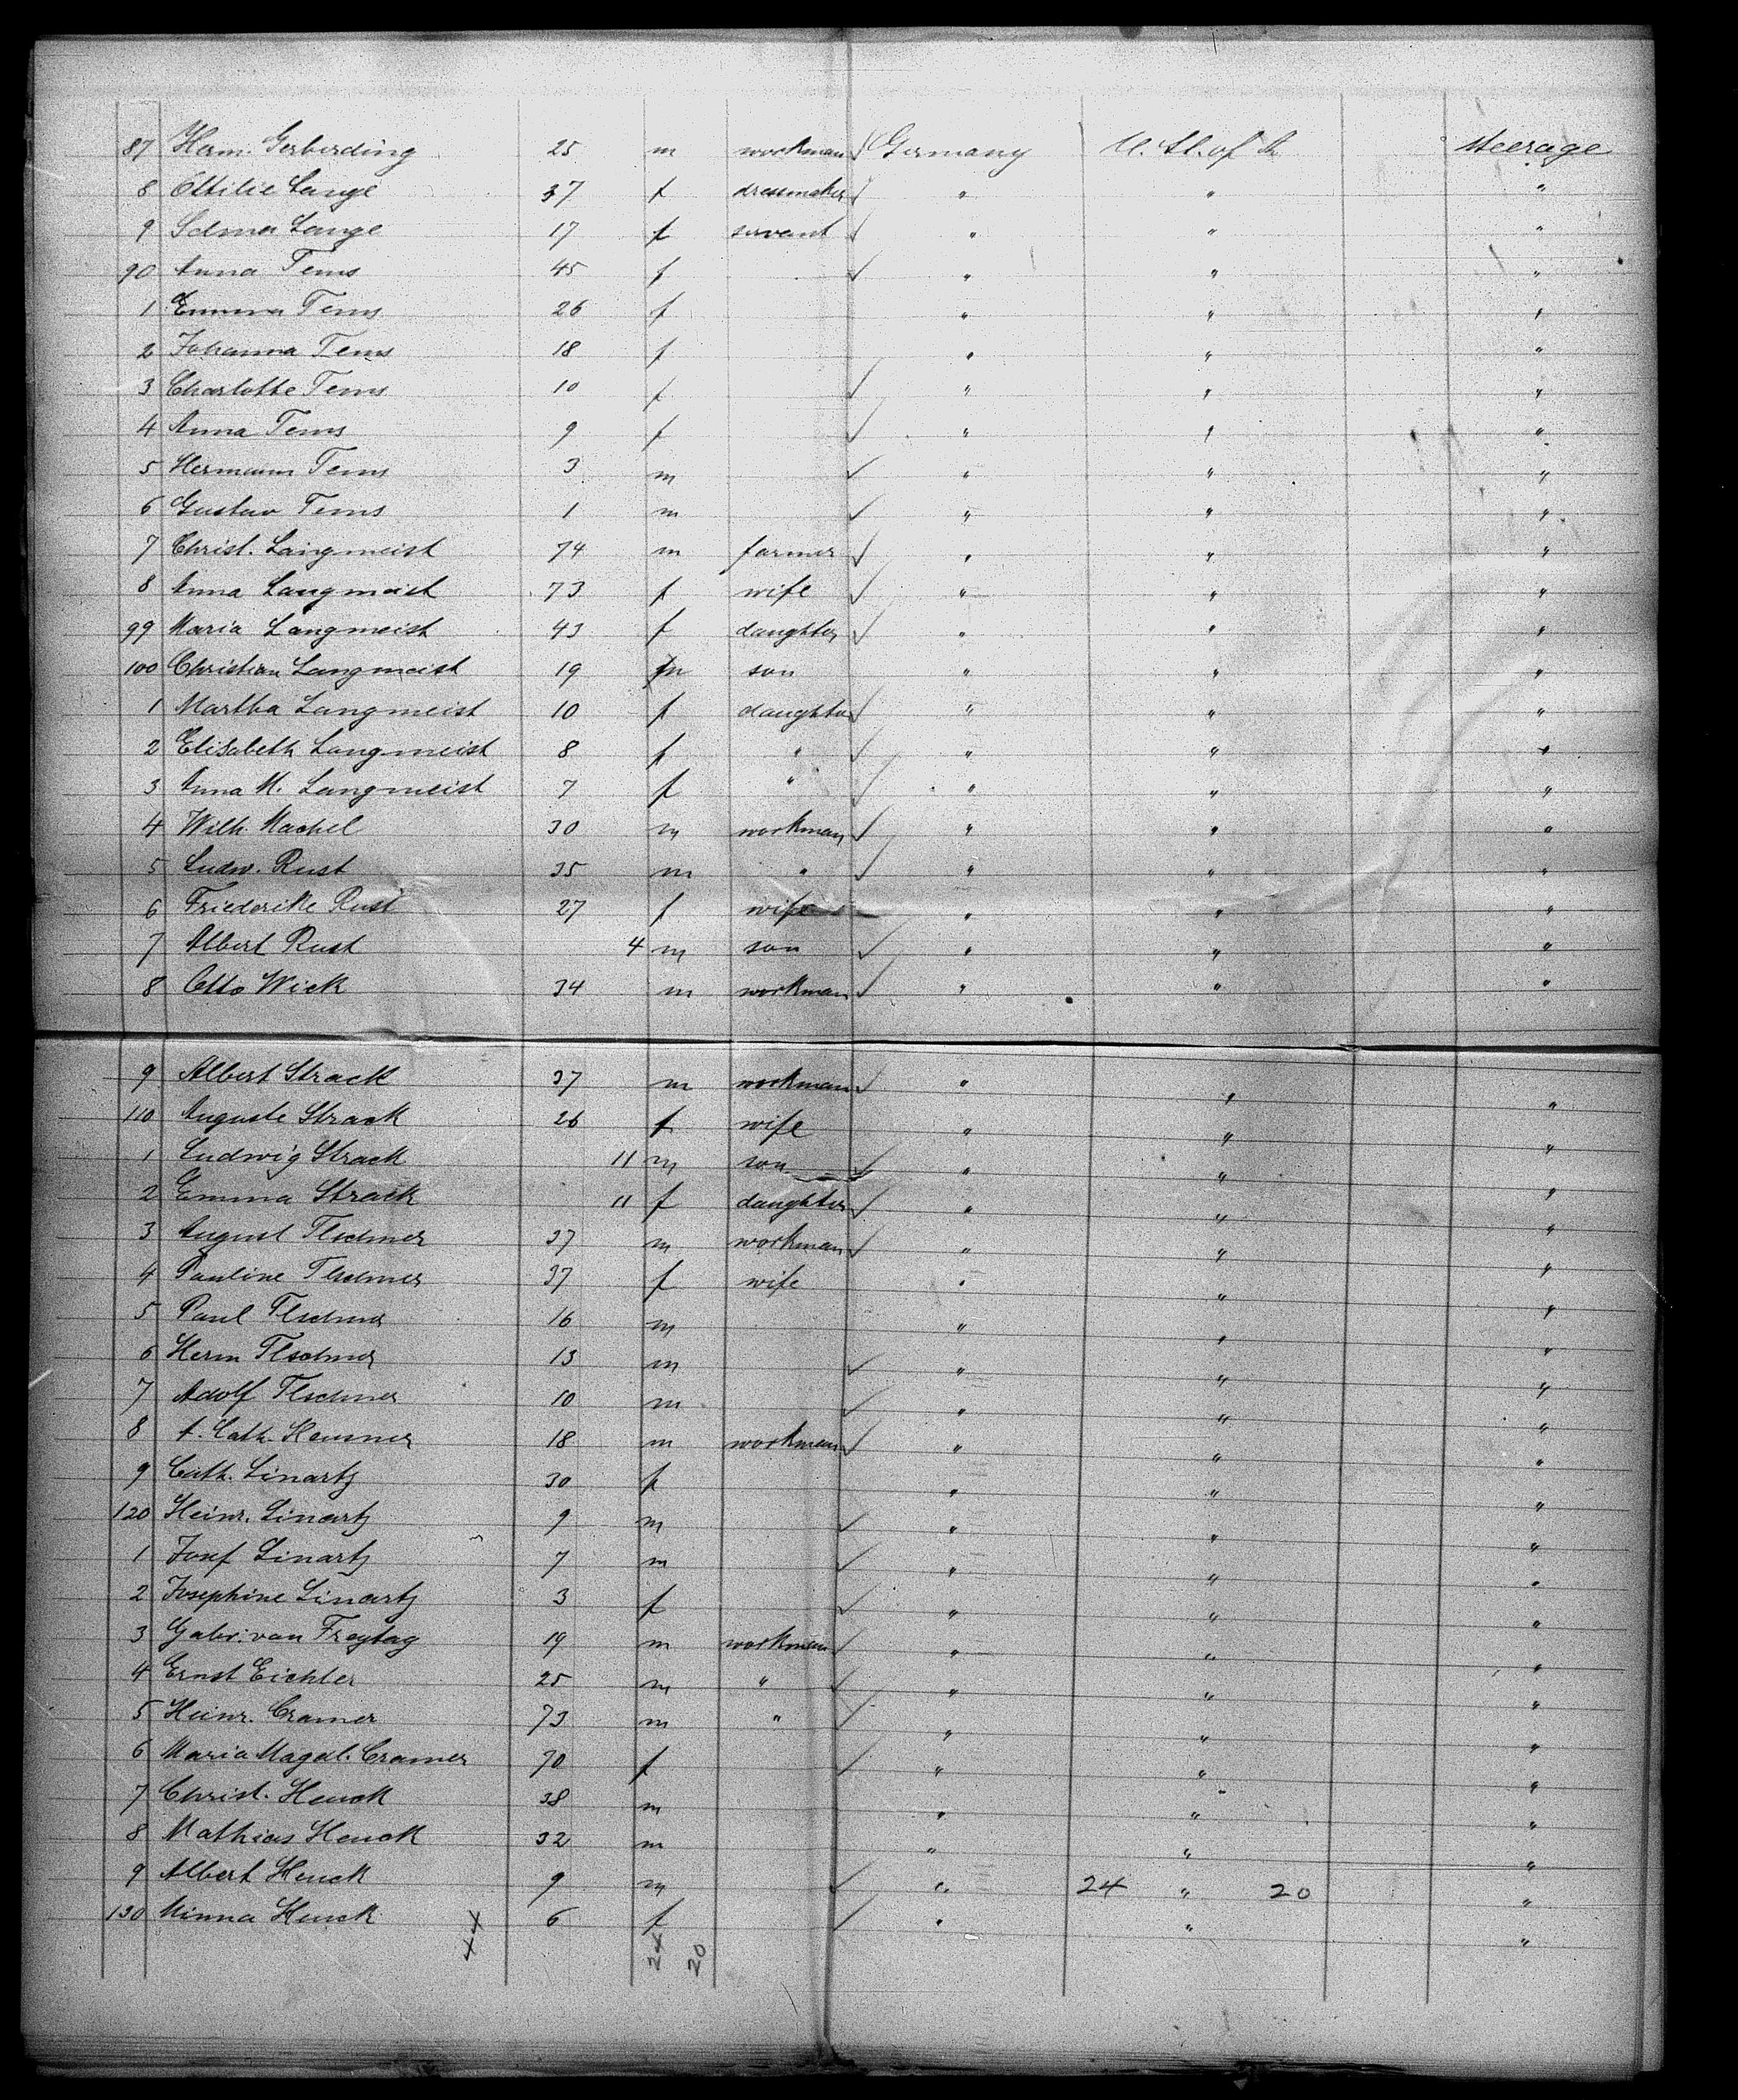 87 Herm. Gerberding 25 m workman Germany U. St. of A Steerage
8 Ottilie Lange 37 f dressmaker " " "
9 Selma Lange 17 f servant " " "
90 Anna Tems 45 f " " "
1 Emma Tems 26 f " " "
2 Johanna Tems 18 f " " "
3 Charlotte Tems 10 f " " "
4 Anna Tems 9 f " " "
5 Hermann Tems 3 m " " "
6 Gustav Tems 1 m " " "
7 Christ. Langmeist 74 m farmer " " "
8 Anna Langmeist 73 f wife " " "
99 Maria Langmeist 43 f daughter " " "
100 Christian Langmeist 19 m son " " "
1 Martha Langmeist 10 f daughter " " "
2 Elisabeth Langmeist 8 f " " " "
3 Anna M. Langmeist 7 f " " " "
4 Wilh. Machel 30 m workman " " "
5 Ludw. Rust 35 m " " " "
6 Friederike Rust 27 f wife " " "
7 Albert Rust 4 m son " " "
8 Otto Wick 34 m workman " " "
9 Albert Strack 37 m workman " " "
110 Auguste Strack 26 f wife " " "
1 Ludwig Strack 11 m son " " "
2 Emma Strack 11 f daughter " " "
3 August 37 m workman " " "
4 Pauline 37 f wife " " "
5 Paul 16 m " " "
6 Herm 13 m " " "
7 Adolf 10 m " " "
8 A. Cath. Heusner 18 m workman " " "
9 Cath. Linartz 30 f " " "
120 Heinr. Linartz 9 m " " "
1 Josef Linartz 7 m " " "
2 Josephine Linartz 3 f " " "
3 Gabr. van Freytag 19 m workman " " "
4 Ernst Eichler 25 m " " " "
5 Heinr. Cramer 73 m " " " "
6 Maria Magdl. Cramer 70 f " " "
7 Christ. Henck 38 m " " "
8 Mathias Henck 32 m " " "
9 Albert Henck 9 m " 24 " 20 "
130 Minna Henck 6 f " " "
44 24 20